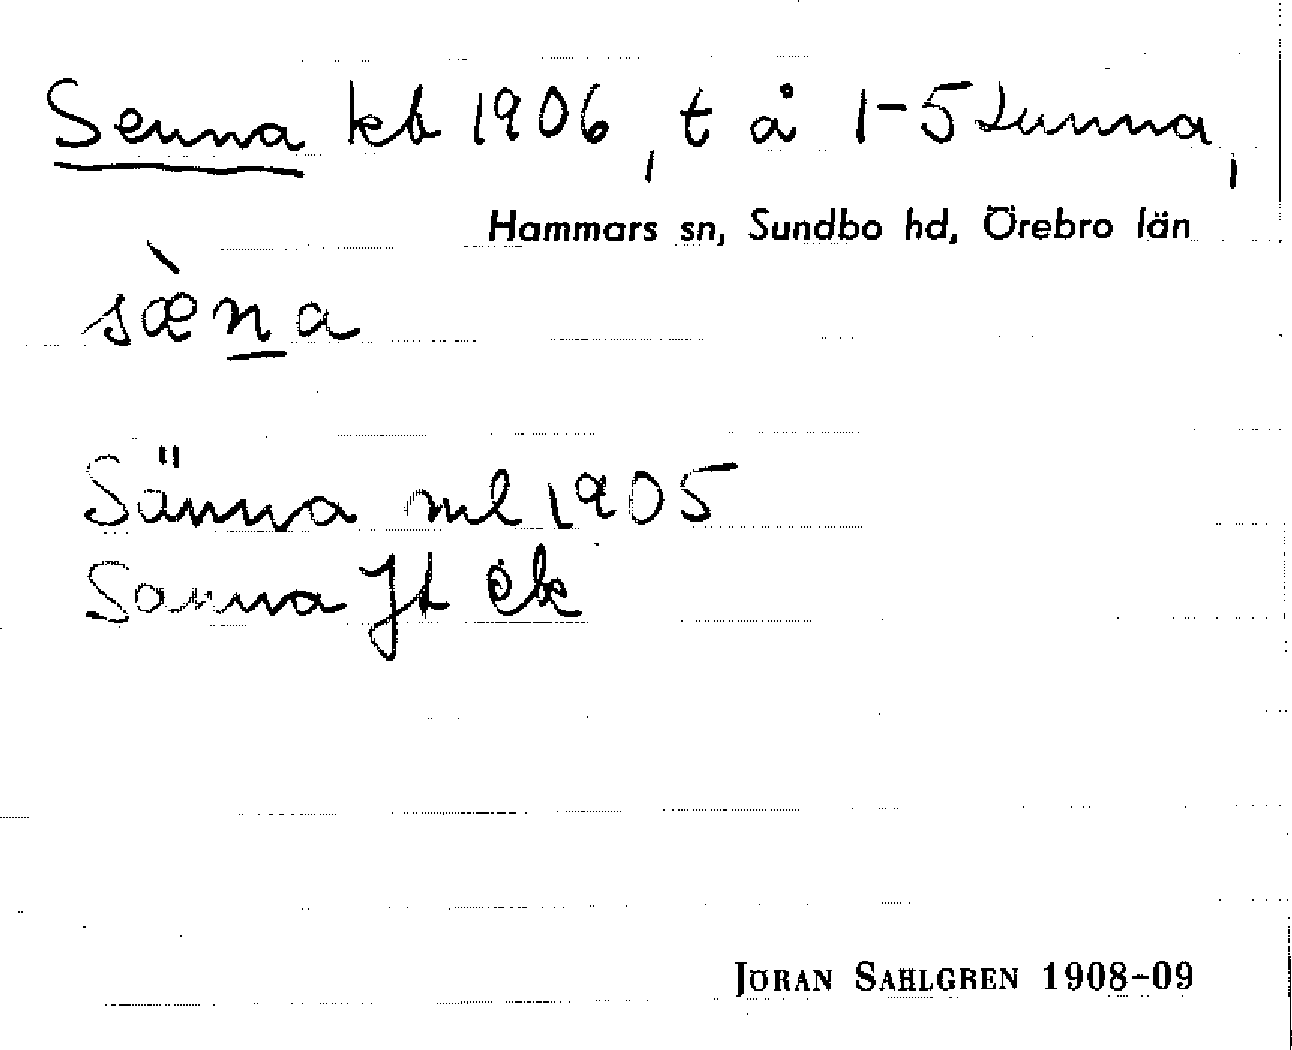 Senna kb 1906, t å 1-5 Lunna,
Hammars sn, Sundbo hd, Örebro län
sæ̀n̲a
Sänna ml 1905
Sanna Jb ek
JÖRAN SAHLGREN 1908-09